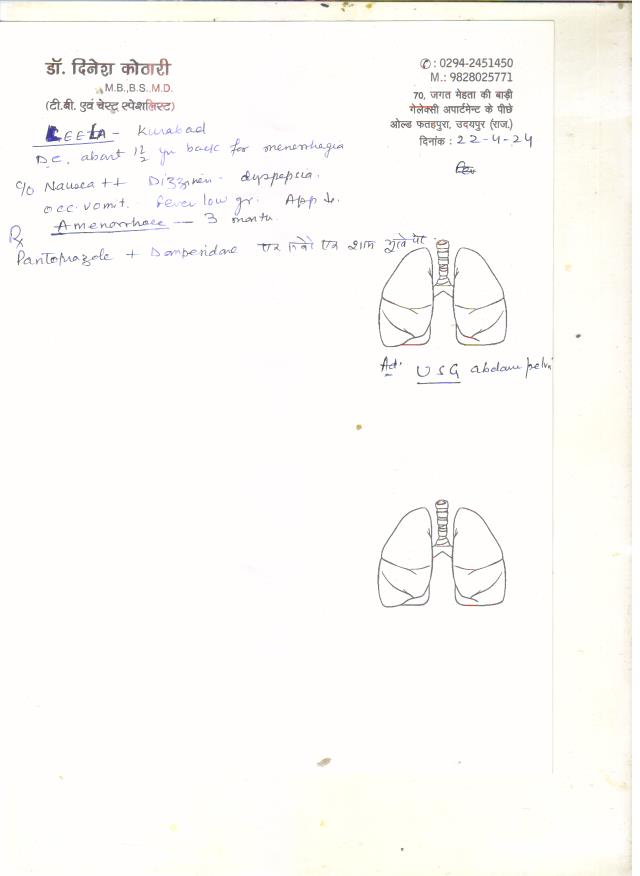 डॉ. दिनेश कोठारी
M.B.,B.S.,M.D.
(टी.बी. एवं चेस्ट स्पेशलिस्ट)
✆ : 0294-2451450
M.: 9828025771
70, जगत मेहता की बाड़ी
गेलेक्सी अपार्टमेन्ट के पीछे
ओल्ड फतहपुरा, उदयपुर (राज.)
दिनांक : 22-4-24
LEELA - Kurabad
D.C. about 1½ yr back for menorrhagia
c/o Nausea ++ Dizziness - dyspepsia.
occ. vomit. fever low gr. App ↓.
Amenorrhoea — 3 month.
Rx
Pantoprazole + Domperidone एक शाम
Ad. USG abdomen pelvi